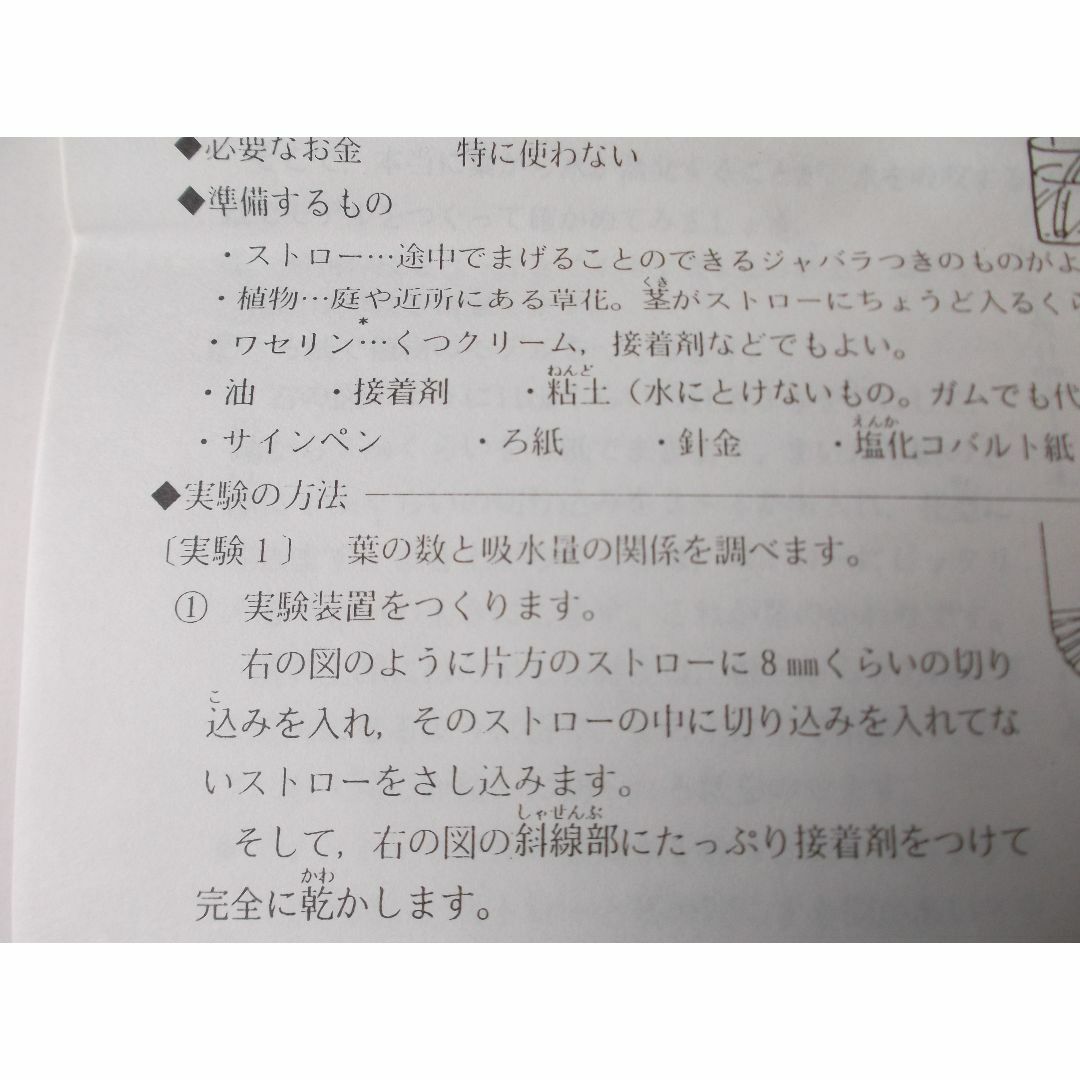 ◆必要なお金　特に使わない
◆準備するもの
・ストロー…途中でまげることのできるジャバラつきのものがよ
くき
・植物…庭や近所にある草花。茎がストローにちょうど入るくら
・ワセリン*…くつクリーム，接着剤などでもよい。
ねんど
・油　・接着剤　・粘土（水にとけないもの。ガムでも代
えんか
・サインペン　・ろ紙　・針金　・塩化コバルト紙
◆実験の方法
〔実験１〕　葉の数と吸水量の関係を調べます。
①　実験装置をつくります。
右の図のように片方のストローに8㎜くらいの切り
こ
込みを入れ，そのストローの中に切り込みを入れてな
いストローをさし込みます。
しゃせんぶ
そして，右の図の斜線部にたっぷり接着剤をつけて
かわ
完全に乾かします。